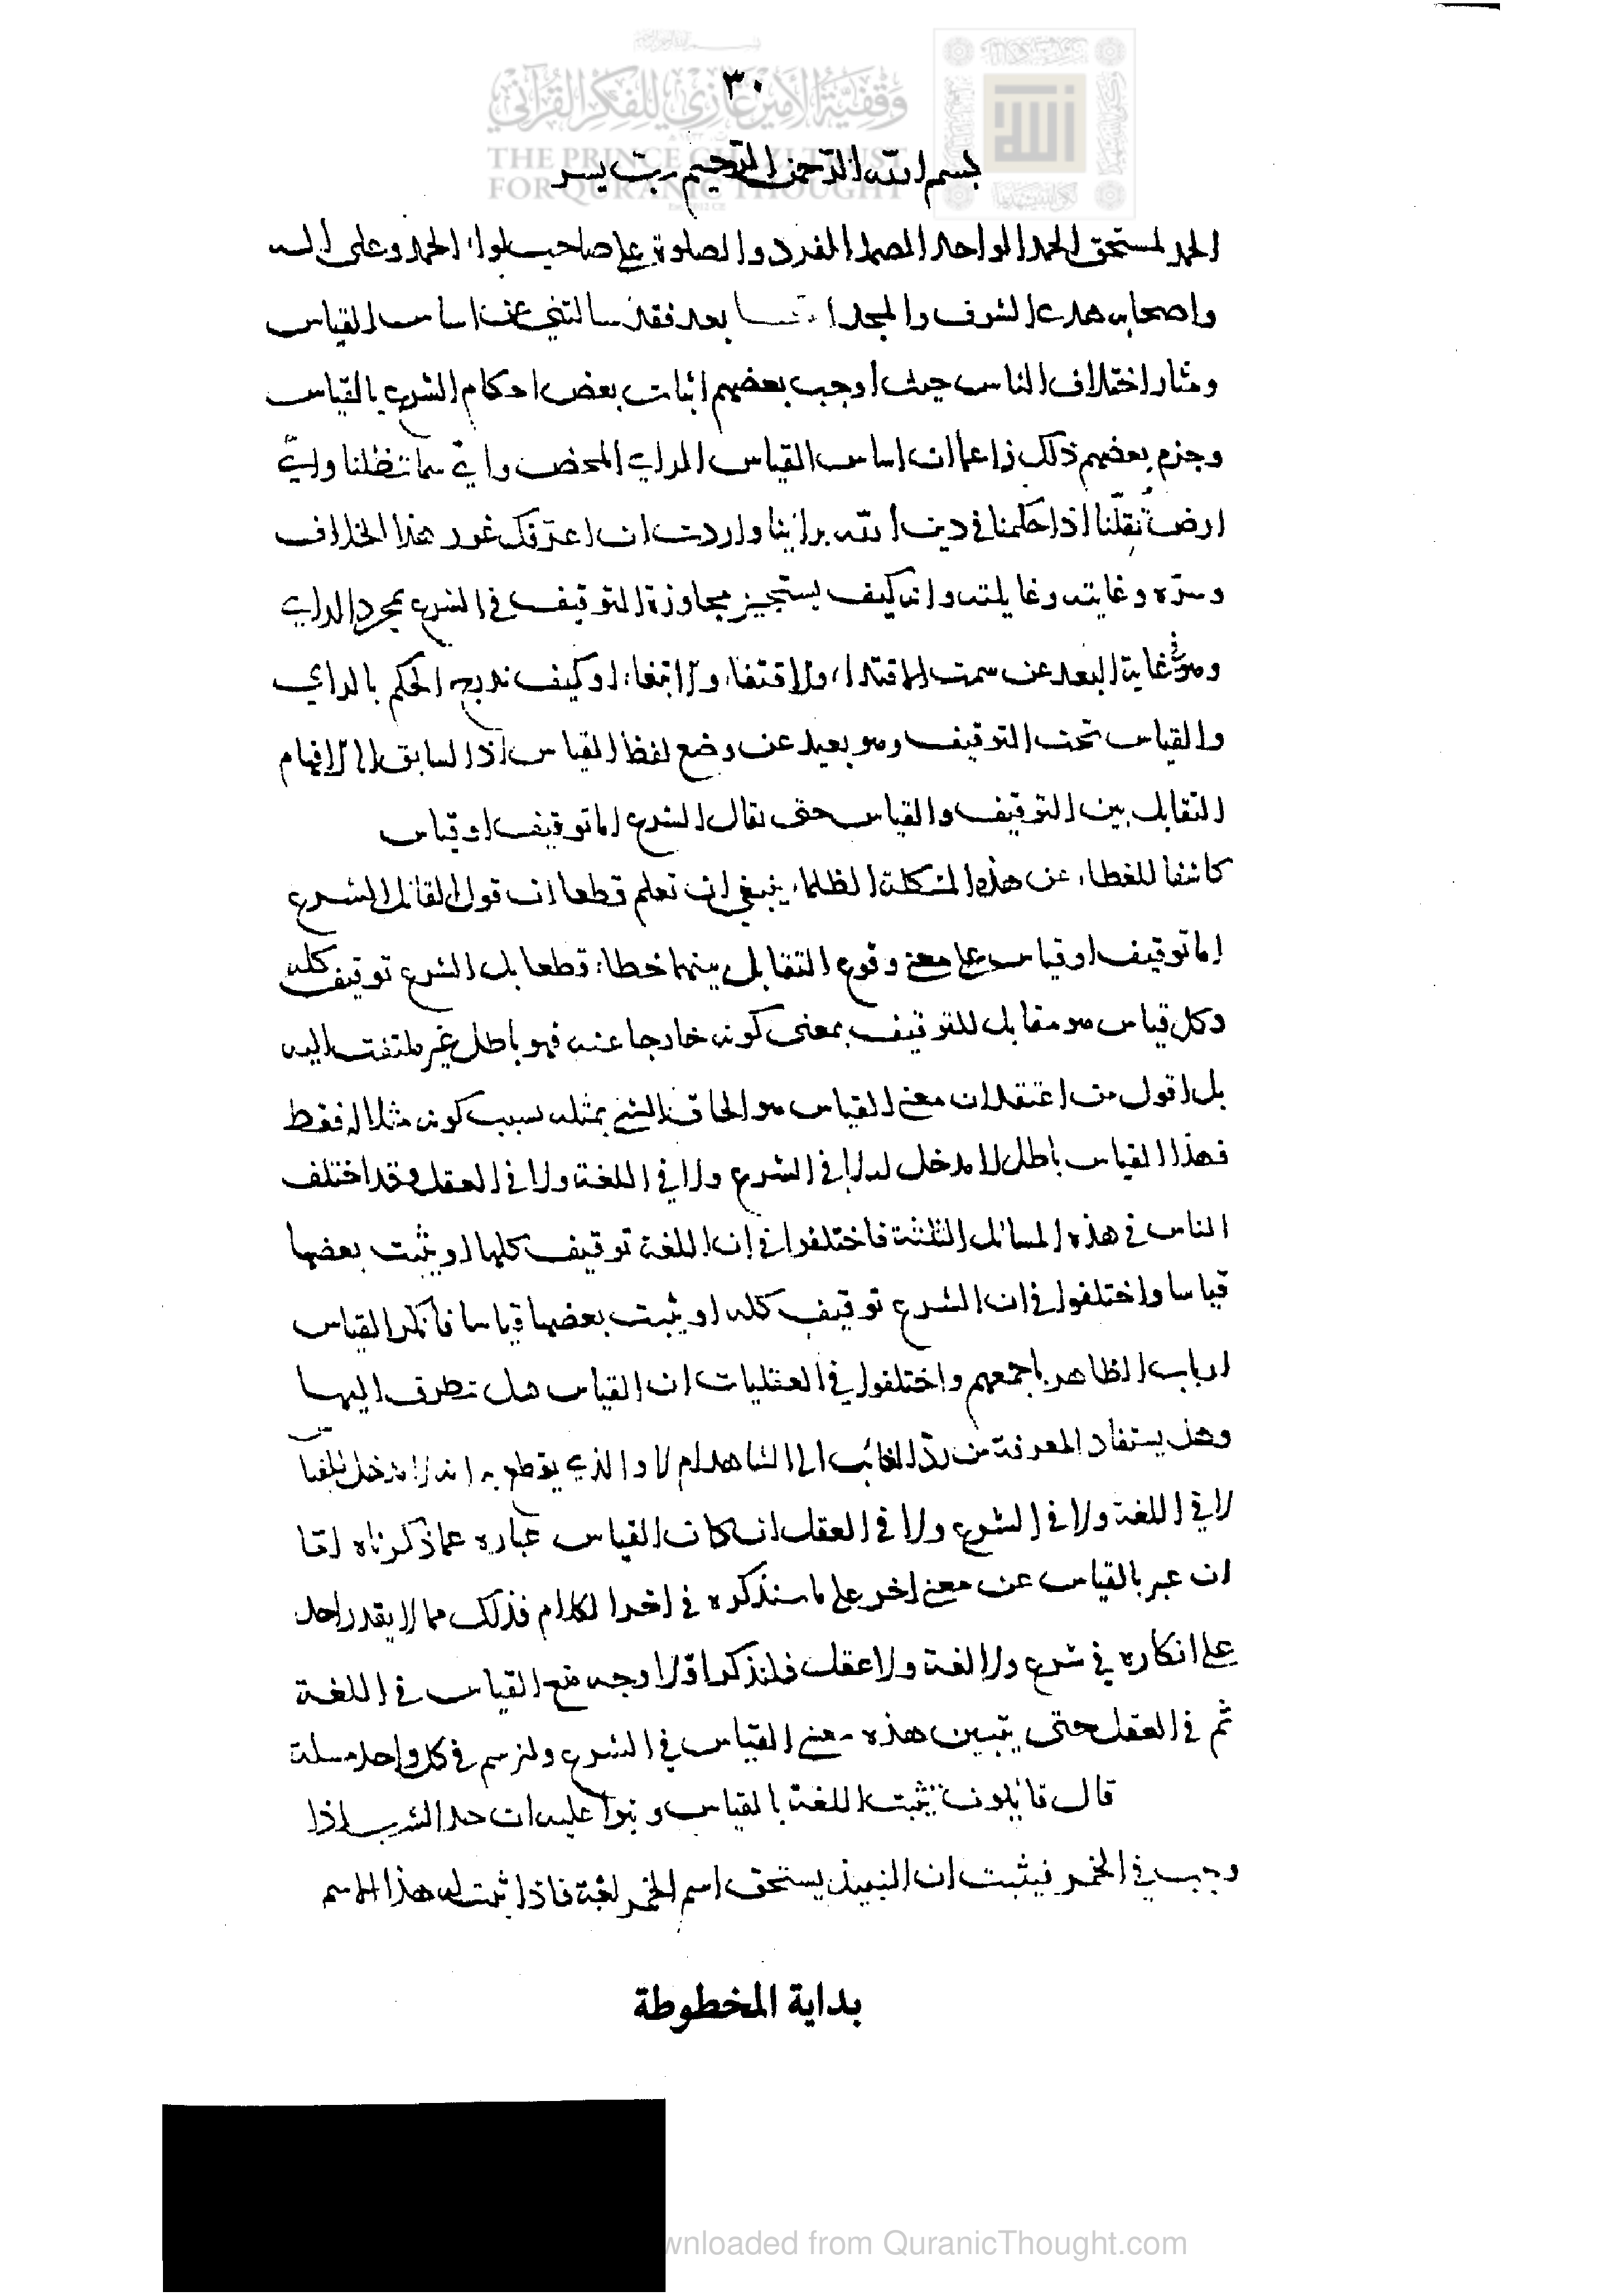 ٣٠
وقفية الأمير غازي للفكر القرآني
THE PRINCE GHAZI TRUST
FOR QURANIC THOUGHT
بسم الله الرحمن الرحيم رب يسر
الحمد لمستحق الحمد الواحد الصمد الفرد والصلوة على صاحب لواء الحمد وعلى اله
واصحابه هدى الشرف والمجد اما بعد فقد سالتني عن اساس القياس
ومثار اختلاف الناس حيث اوجب بعضهم اثبات بعض احكام الشرع بالقياس
وجزم بعضهم ذلك زاعما ان اساس القياس الراي المحض واي سما تظلنا واي
ارض تقلنا اذا حكمنا في دين الله براينا واردت ان اعرفك غور هذا الخلاف
وسره وغايته وغايلته وانه كيف يستجيز مجاوزة التوقيف في الشرع بمجرد الراي
وهو في غاية البعد عن سمت الاقتداء والاقتفاء والاتباع او كيف ندرج الحكم بالراي
والقياس تحت التوقيف وهو بعيد عن وضع لفظ القياس اذ السابق الى الافهام
التقابل بين التوقيف والقياس حتى يقال الشرع اما توقيف او قياس
كاشفا للغطاء عن هذه المشكلة الظلماء ينبغي ان تعلم قطعا ان قول القائل الشرع
اما توقيف او قياس على معنى وقوع التقابل بينهما خطاء قطعا بل الشرع توقيف كله
وكل قياس هو مقابل للتوقيف بمعنى كونه خارجا عنه فهو باطل غير ملتفت اليه
بل اقول من اعتقد ان معنى القياس هو الحاق الشي بمثله بسبب كونه مثلا له فقط
فهذا القياس باطل لا مدخل له لا في الشرع ولا في اللغة ولا في العقل وقد اختلف
الناس في هذه المسائل الثلثة فاختلفوا في ان اللغة توقيف كلها او يثبت بعضها
قياسا واختلفوا في ان الشرع توقيف كله او يثبت بعضها قياسا فانكر القياس
ارباب الظاهر باجمعهم واختلفوا في العقليات ان القياس هل تطرق اليها
وهل يستفاد المعرفة من رد الغائب الى الشاهد ام لا والذي يقطع به انه لا مدخل للقياس
لا في اللغة ولا في الشرع ولا في العقل ان كان القياس عباره عما ذكرناه اما
ان عبر بالقياس عن معنى اخر على ما سنذكره في اخر الكلام فذلك مما لا يقدر احد
على انكاره في شرع ولا لغة ولا عقل فلنذكر اولا وجه منع القياس في اللغة
ثم في العقل حتى يتبين هذه معنى القياس في الشرع ولنرسم في كل واحد مسلة
قال قايلون يثبت اللغة بالقياس وبنوا عليه ان حد الشرب اذا
وجب في الخمر فيثبت ان النبيذ يستحق اسم الخمر لغة فاذا ثبت له هذا الاسم
بداية المخطوطة
wnloaded from QuranicThought.com